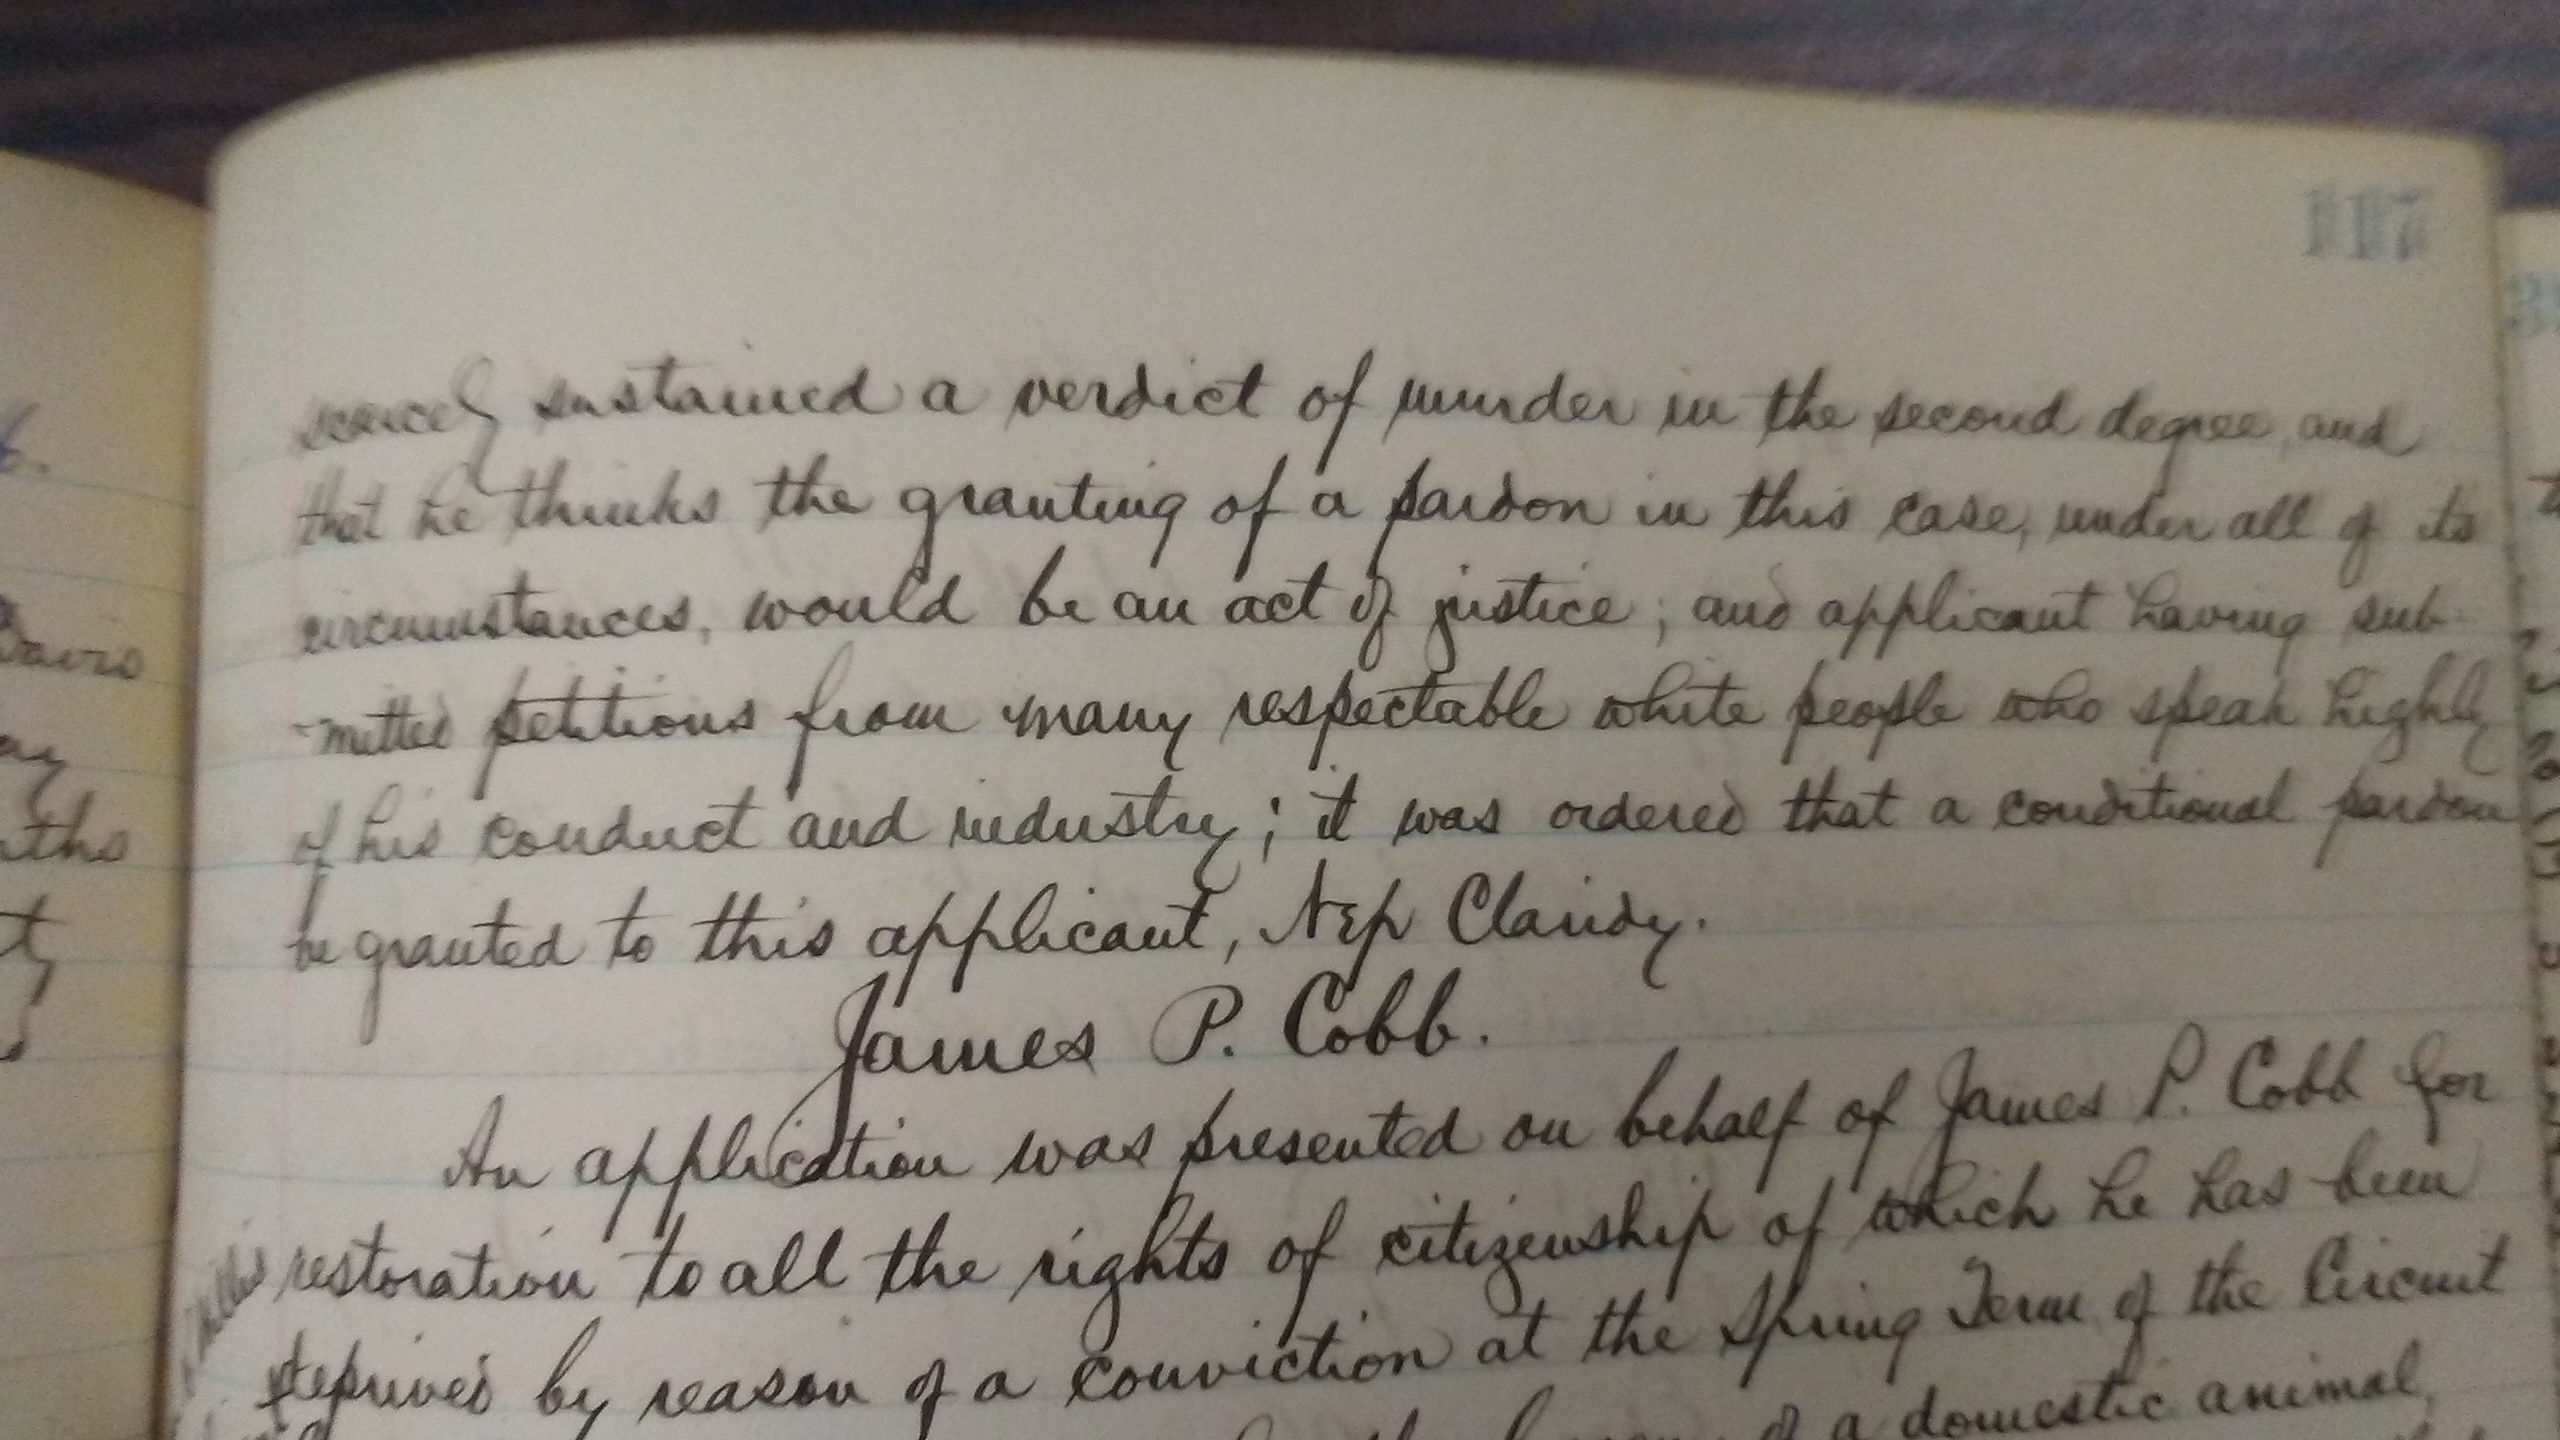 117
scarcely sustained a verdict of murder in the second degree, and
that he thinks the granting of a pardon in this case, under all of its
circumstances, would be an act of justice; and applicant having sub-
-mitted petitions from many respectable white people who speak highly
of his conduct and industry; it was ordered that a conditional pardon
be granted to this applicant, Nep Clandy.
James P. Cobb.
An application was presented on behalf of James P. Cobb for
restoration to all the rights of citizenship of which he has been
deprived by reason of a conviction at the Spring Term of the Circuit
a domestic animal,